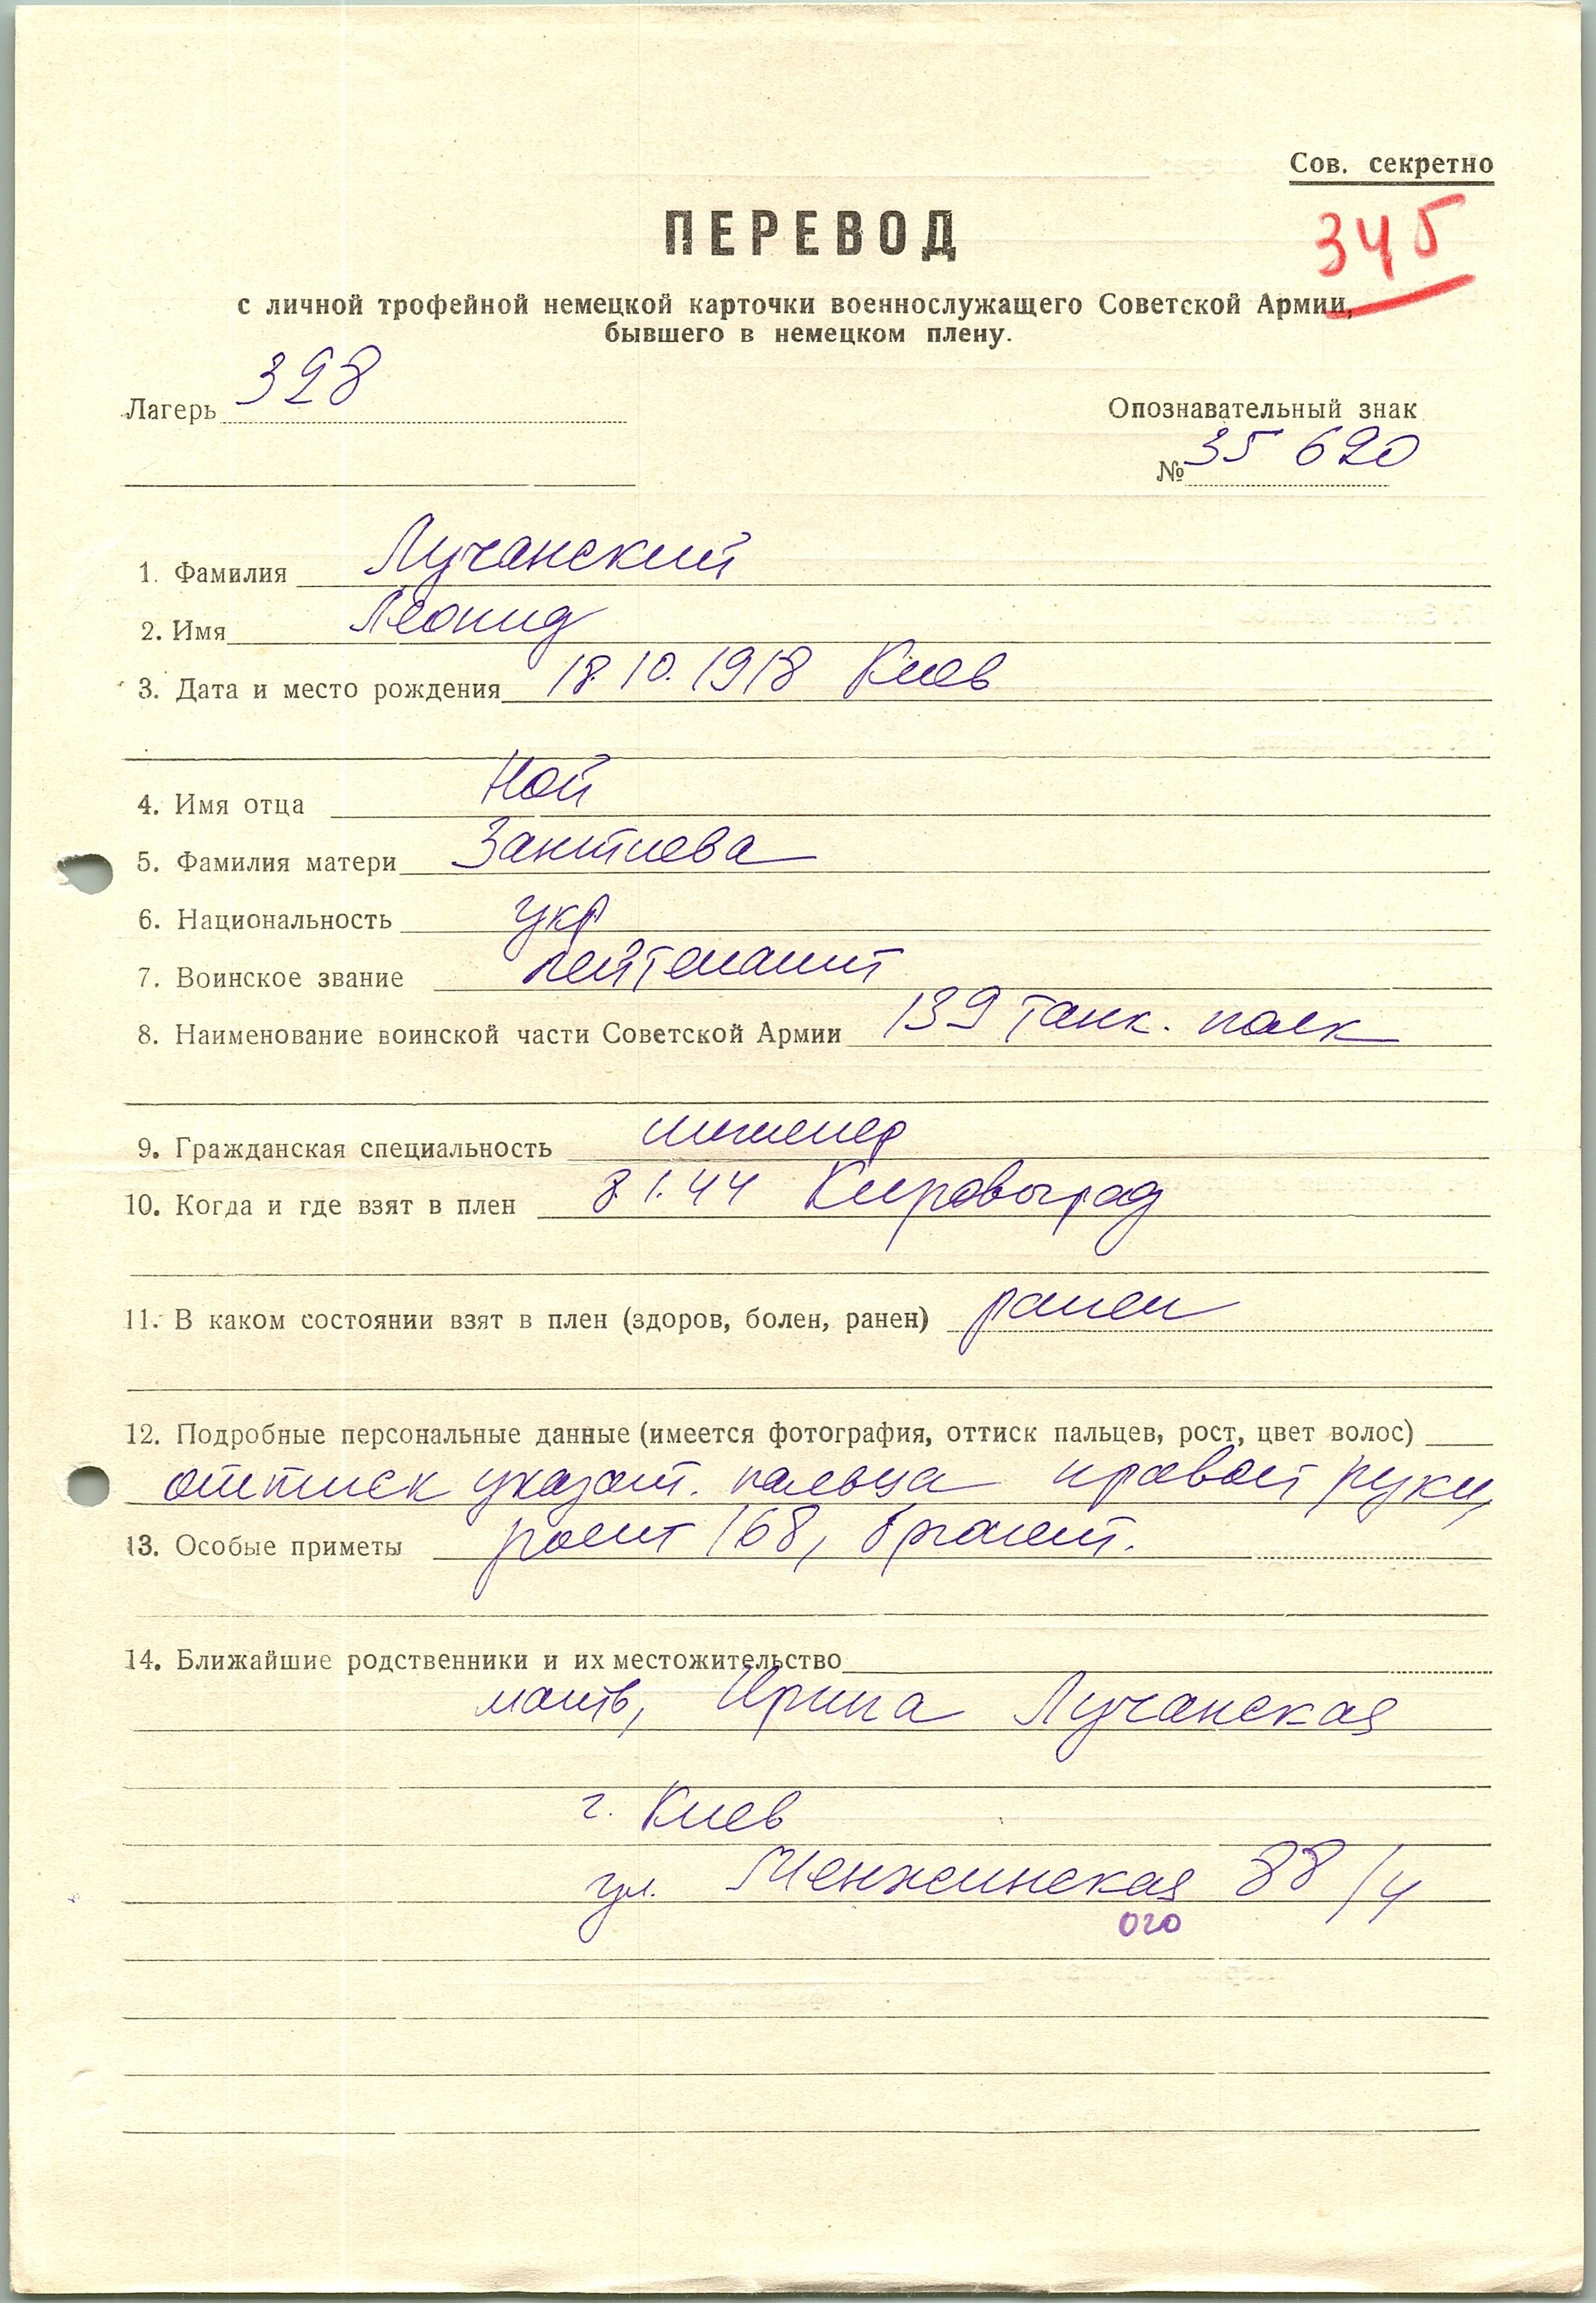 Сов. секретно
345
ПЕРЕВОД
с личной трофейной немецкой карточки военнослужащего Советской Армии,
бывшего в немецком плену.
Лагерь 328
Опознавательный знак
№ 35 620
1. Фамилия Лучанский
2. Имя Леонид
3. Дата и место рождения 18.10.1918 Киев
4. Имя отца Ной
5. Фамилия матери
6. Национальность укр
7. Воинское звание лейтенант
8. Наименование воинской части Советской Армии 139 танк. полк
9. Гражданская специальность инженер
10. Когда и где взят в плен 8.1.44 Кировоград
11. В каком состоянии взят в плен (здоров, болен, ранен) ранен
12. Подробные персональные данные (имеется фотография, оттиск пальцев, рост, цвет волос)
оттиск указат. пальца правой руки,
13. Особые приметы рост 168,
14. Ближайшие родственники и их местожительство
мать, Ирина Лучанская
г. Киев
ул. Менжинская 88/4
ого